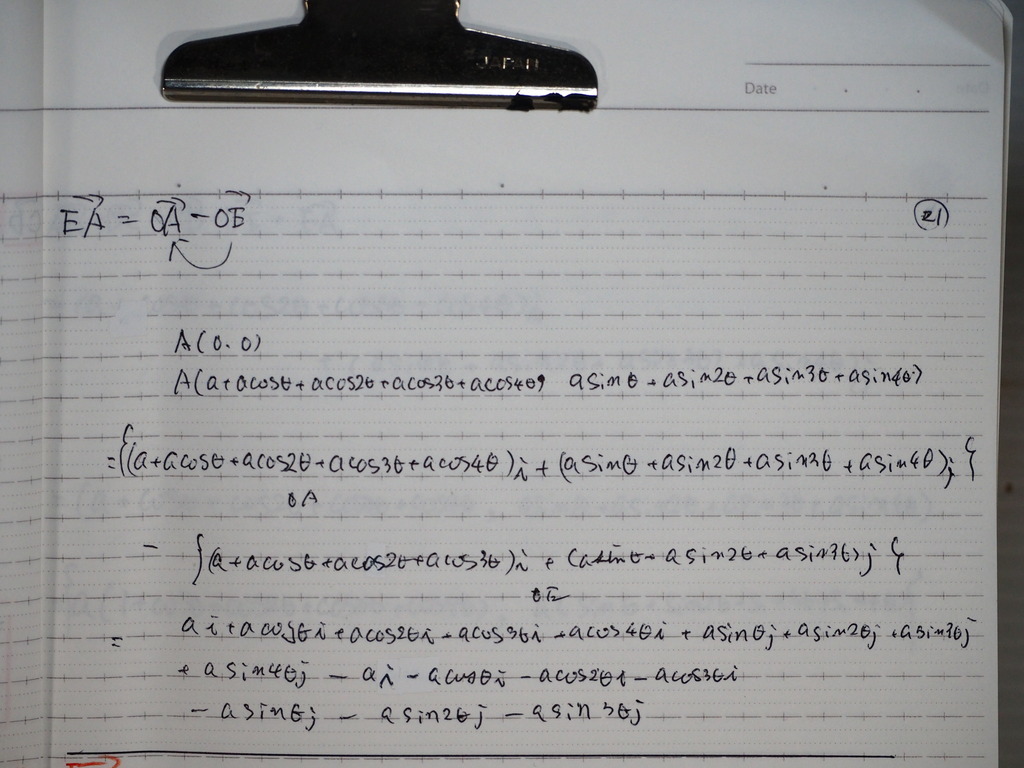 JAPAN
Date
EA = OA - OE
21
A(0.0)
A(a+acosθ+acos2θ+acos3θ+acos4θ, asinθ+asin2θ+asin3θ+asin4θ)
={(a+acosθ+acos2θ+acos3θ+acos4θ)i + (asinθ+asin2θ+asin3θ+asin4θ)j}
OA
- {(a+acosθ+acos2θ+acos3θ)i + (asinθ+asin2θ+asin3θ)j}
OE
= ai+acosθi+acos2θi+acos3θi+acos4θi+asinθj+asin2θj+asin3θj
+asin4θj - ai - acosθi - acos2θi - acos3θi
- asinθj - asin2θj - asin3θj